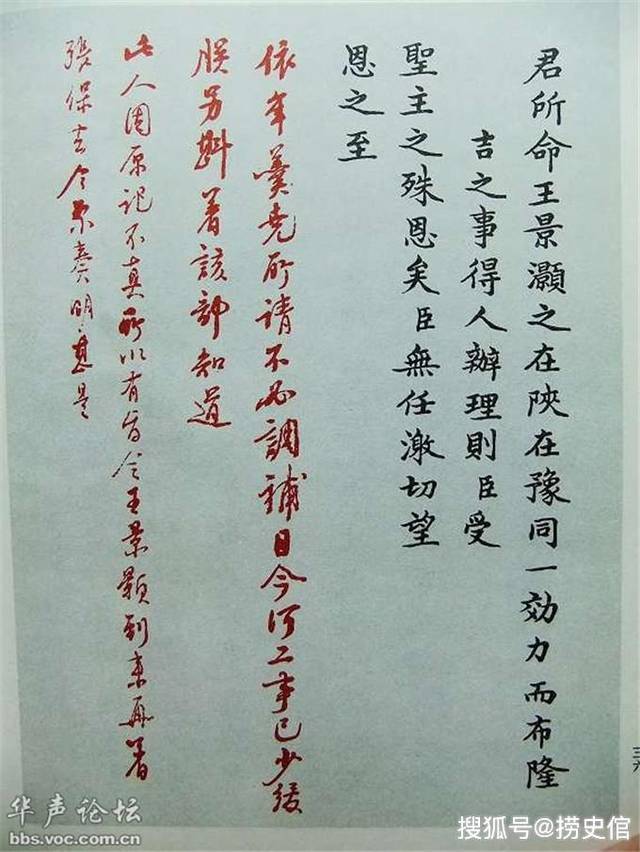 君所命王景灝之在陝在豫同一効力而布隆
吉之事得人辦理則臣受
聖主之殊恩矣臣無任激切望
恩之至
依年羹堯所請不必調補目今河工事已少緩
朕另斟着該部知道
此人因原記不真所以有旨令王景顥到來再着
張保去今奏明甚是
华声论坛
bbs.voc.com.cn
搜狐号@捞史倌